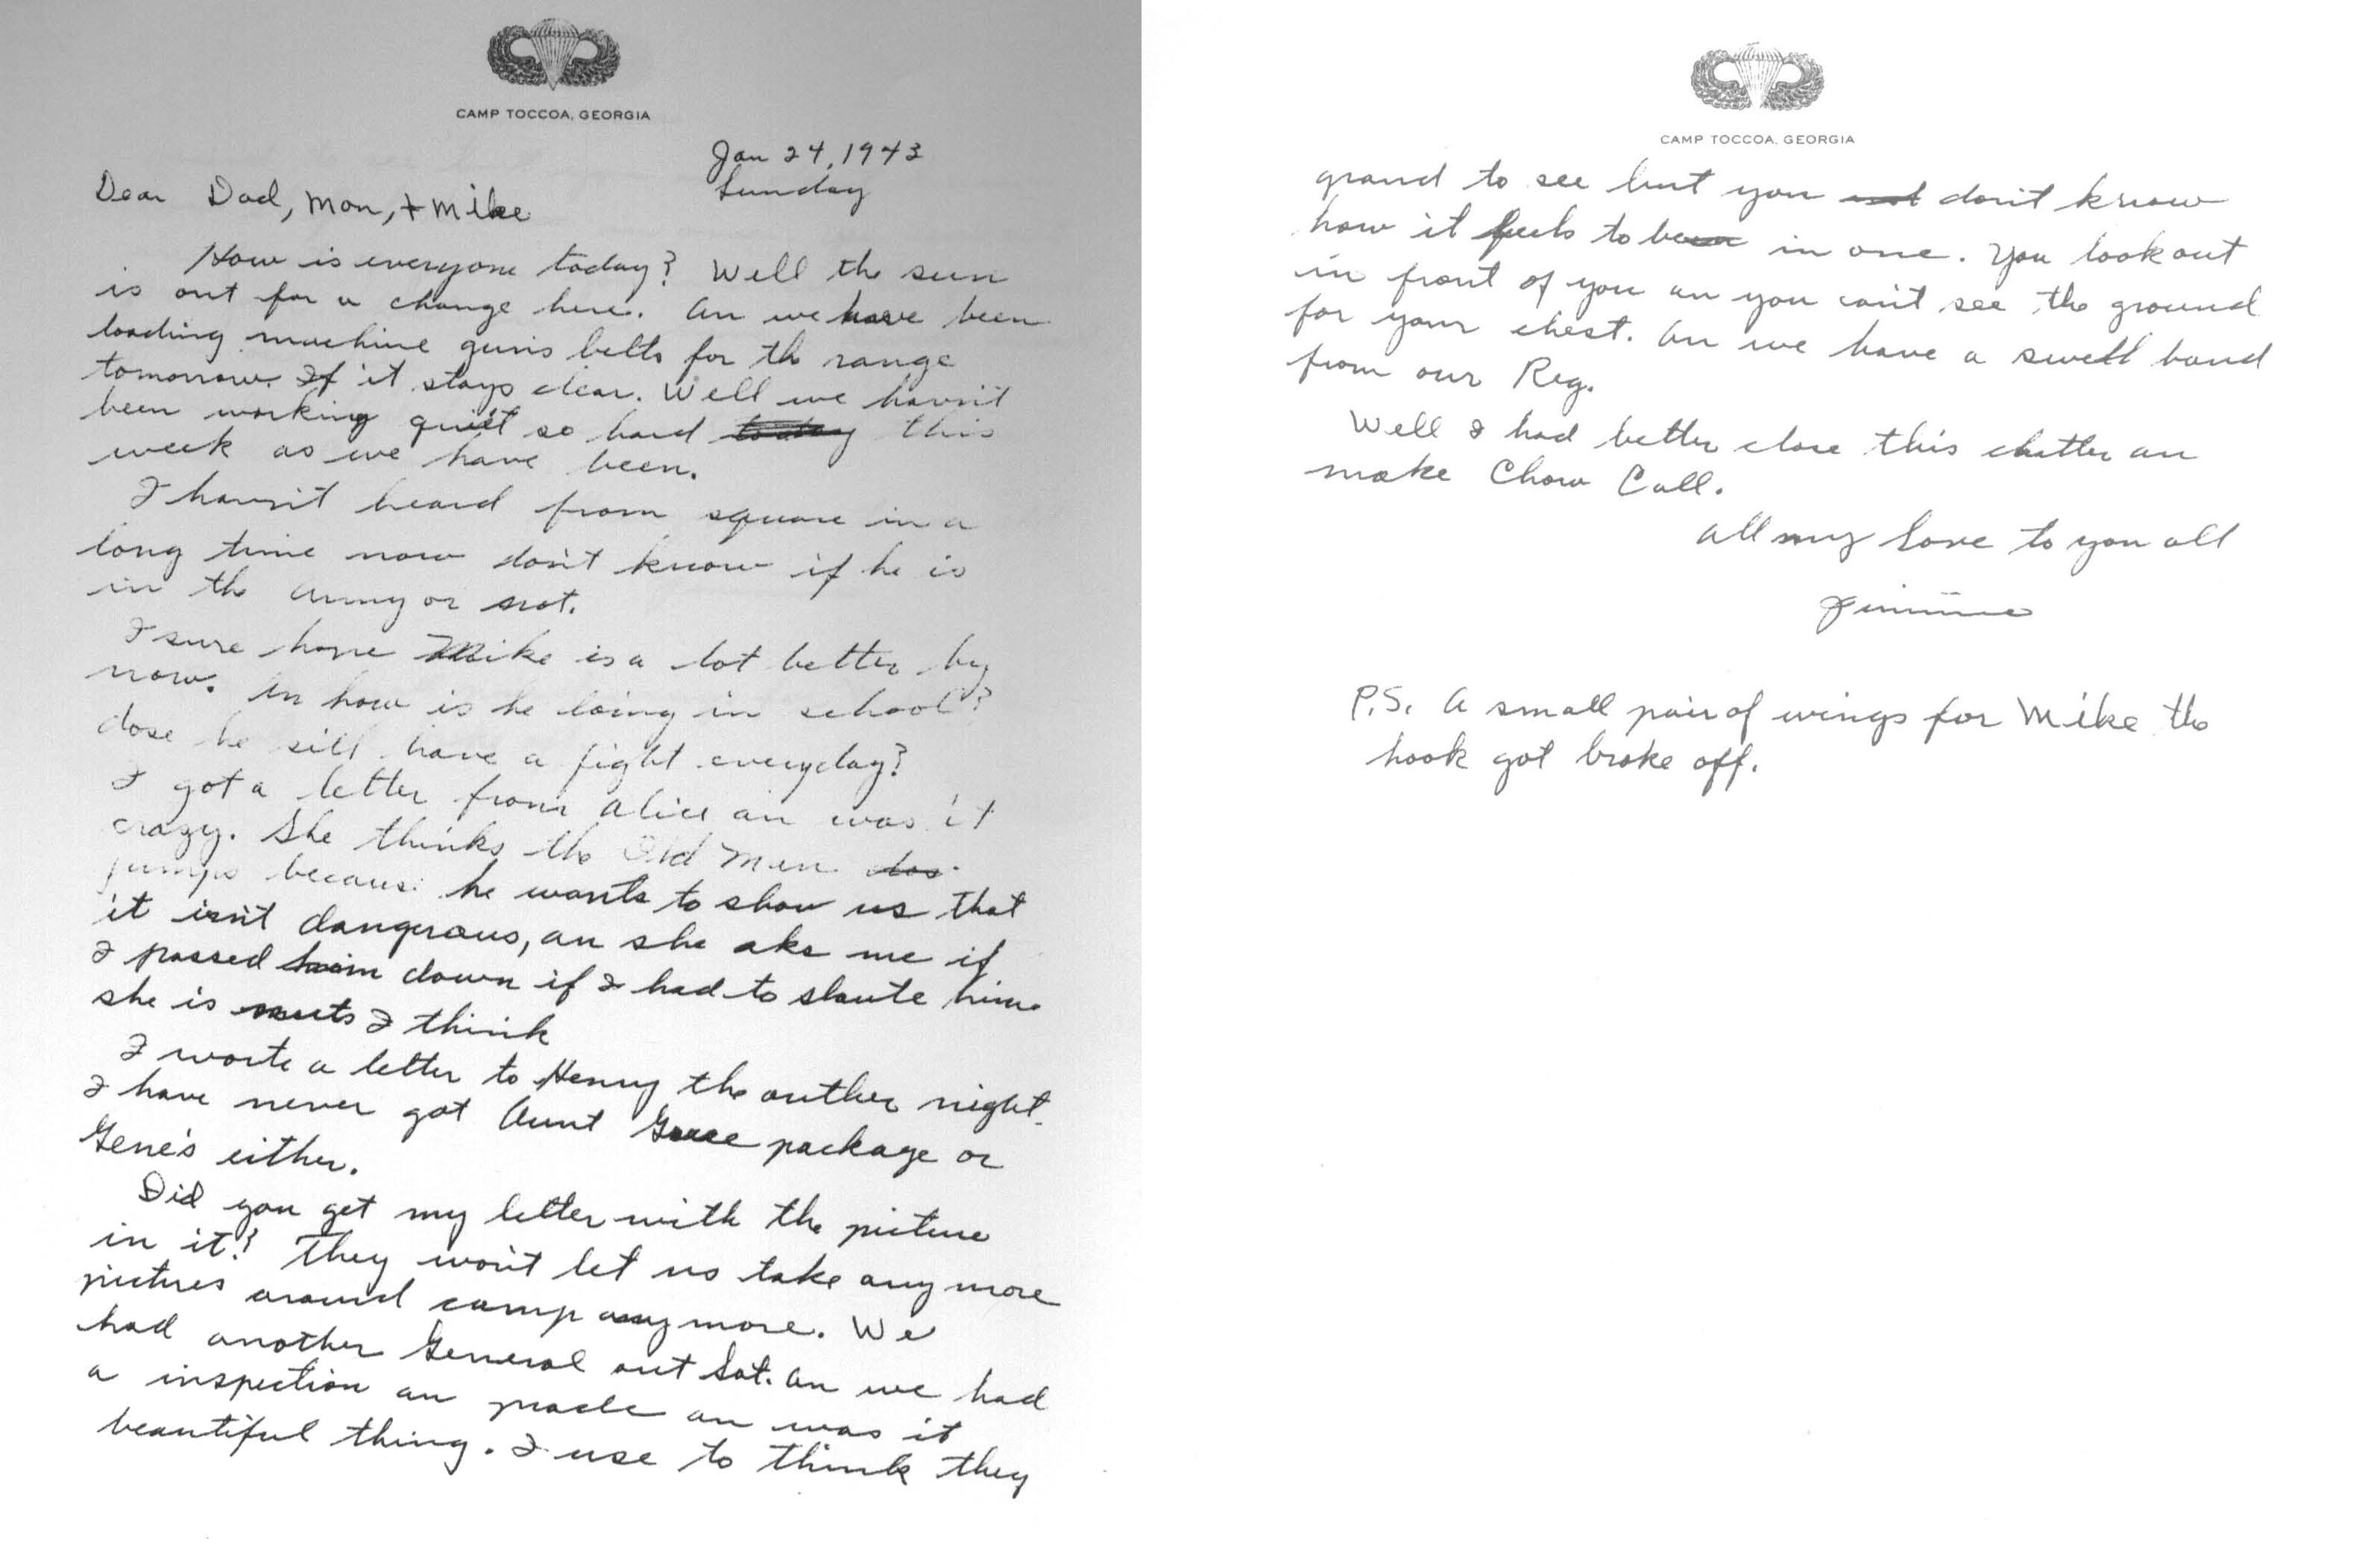 CAMP TOCCOA, GEORGIA
Jan 24, 1943
Sunday
Dear Dad, Mom, + Mike
How is everyone today? Well the sun
is out for a change here. An we have been
loading machine guns belts for th range
tomorrow. If it stays clear. Well we havn't
been working quiet so hard today this
week as we have been.
I havn't heard from square in a
long time now don't know if he is
in th army or not.
I sure hope Mike is a lot better by
now. An how is he doing in school?
dose he sill have a fight everyday?
I got a letter from Alice an was it
crazy. She thinks the Old Men
jumps because he wants to show us that
it isn't dangerous, an she aks me if
I passed him down if I had to slaute him
she is nuts I think
I worte a letter to Henry the outher night.
I have never got Aunt Grace package or
Gene's either.
Did you get my letter with the picture
in it? They won't let us take any more
pictures around camp anymore. We
had another General out Sat. An we had
a inspection an prade an was it
beautiful thing. I use to think they
CAMP TOCCOA, GEORGIA
grand to see but you not don't know
how it feels to be in one. You look out
in front of you an you can't see the ground
for your chest. An we have a swell band
from our Reg.
Well I had better close this chatter an
make Chow Call.
All my Love to you all
Jimmie
P.S. A small pair of wings for Mike the
hook got broke off.